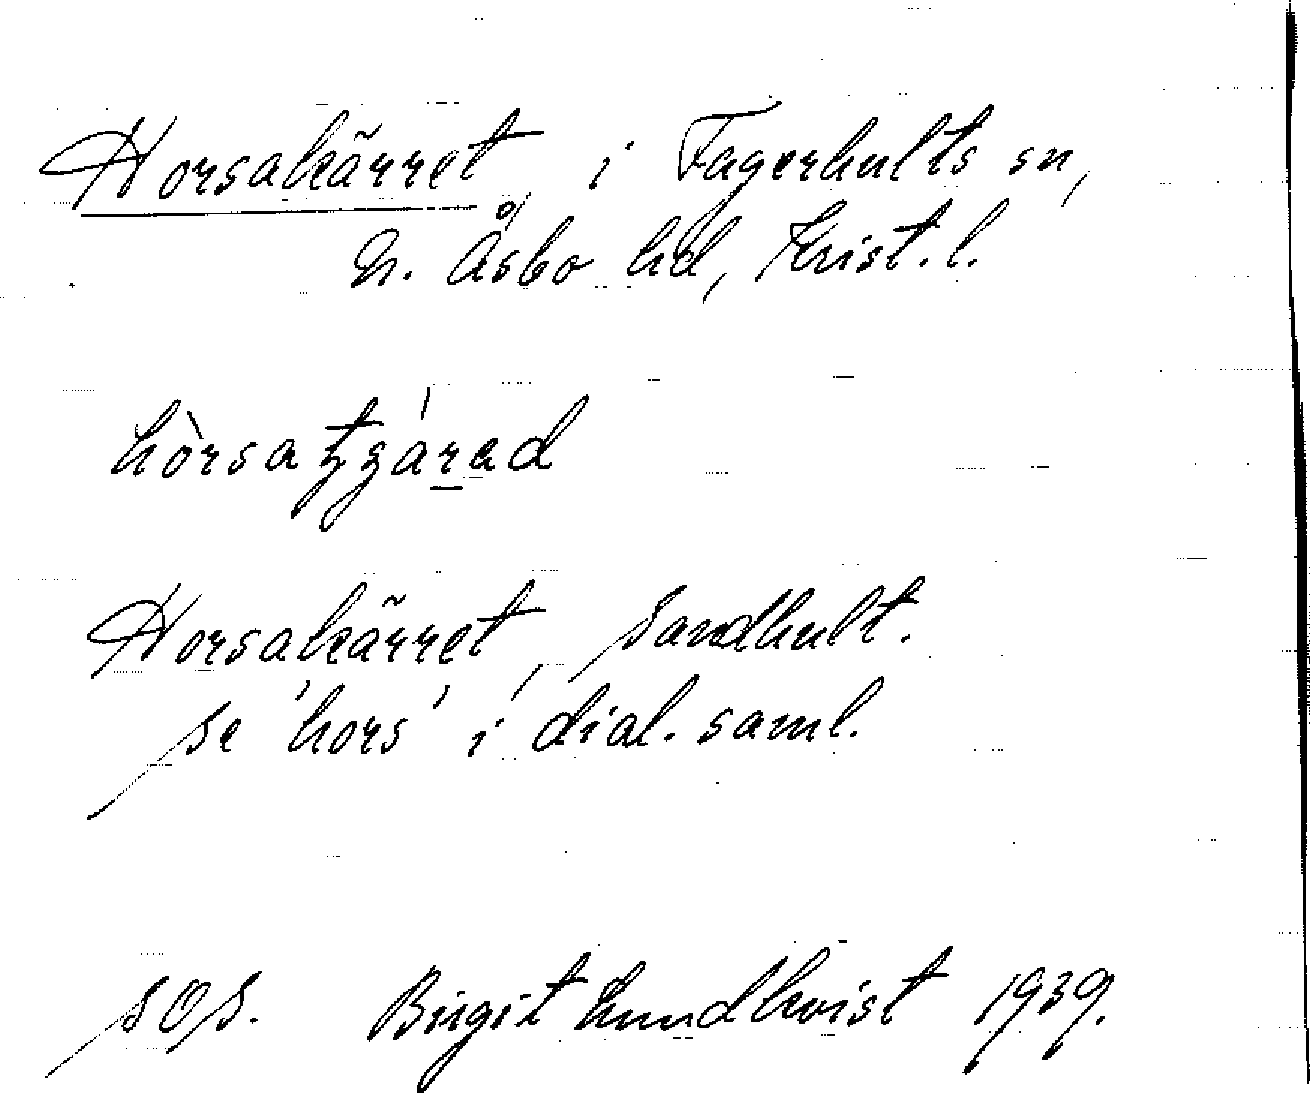 Horsakärret i Fagerhults sn,
N. Åsbo hd, Krist. l.
Horsakärret, Sandhult.
se 'hors' i dial. saml.
SOS. Birgit Lundkvist 1939.